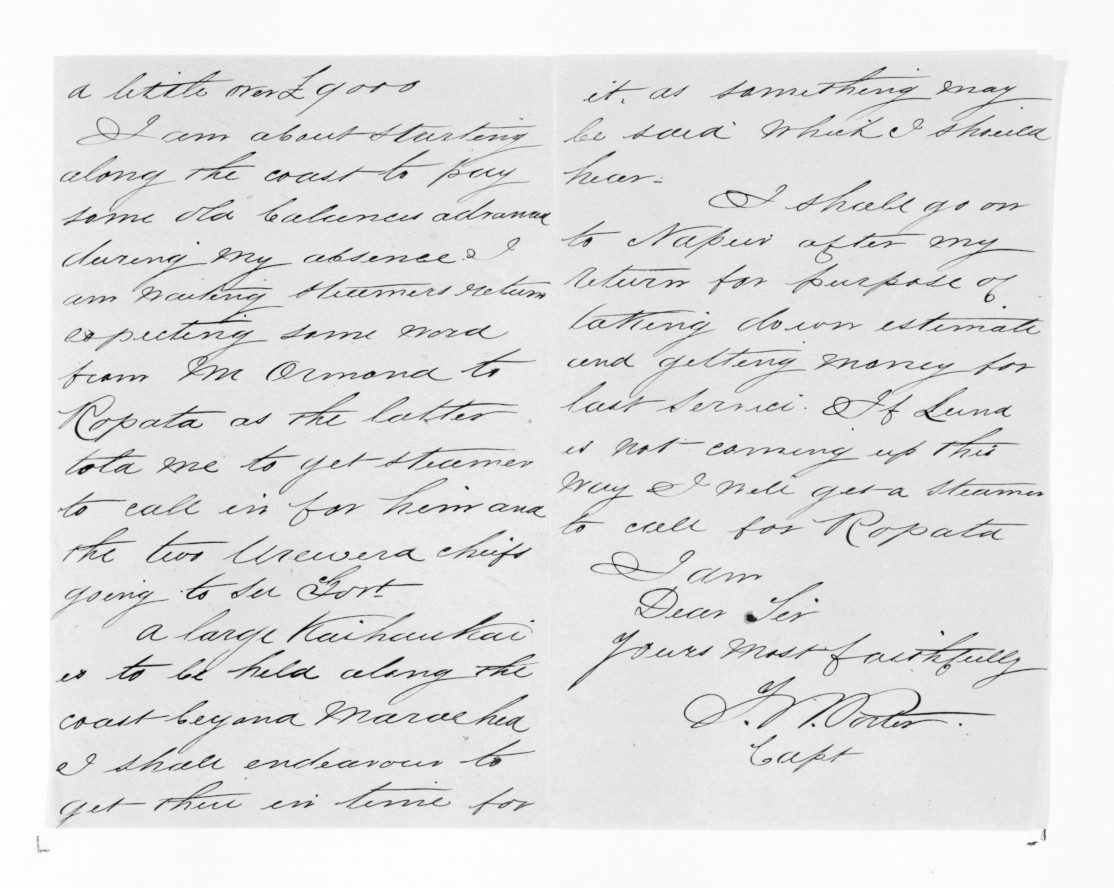 a little over £9000
I am about starting
along the coast to pay
some old balances advanced
during my absence. I
am waiting steamers return
expecting some word
from Mr Ormond to
Ropata as the latter
told me to get steamer
to call in for him and
the two Urewera chiefs
going to see Govt
a large Kaihaukai
is to be held along the
coast beyond
I shall endeavour to
get there in time for
it, as something may
be said which I should
hear.
I shall go on
to Napier after my
return for purpose of
taking down estimate
and getting money for
last service. If Luna
is not coming up this
way I will get a steamer
to call for Ropata
I am
Dear Sir
Yours most faithfully
T. W. Porter.
Capt